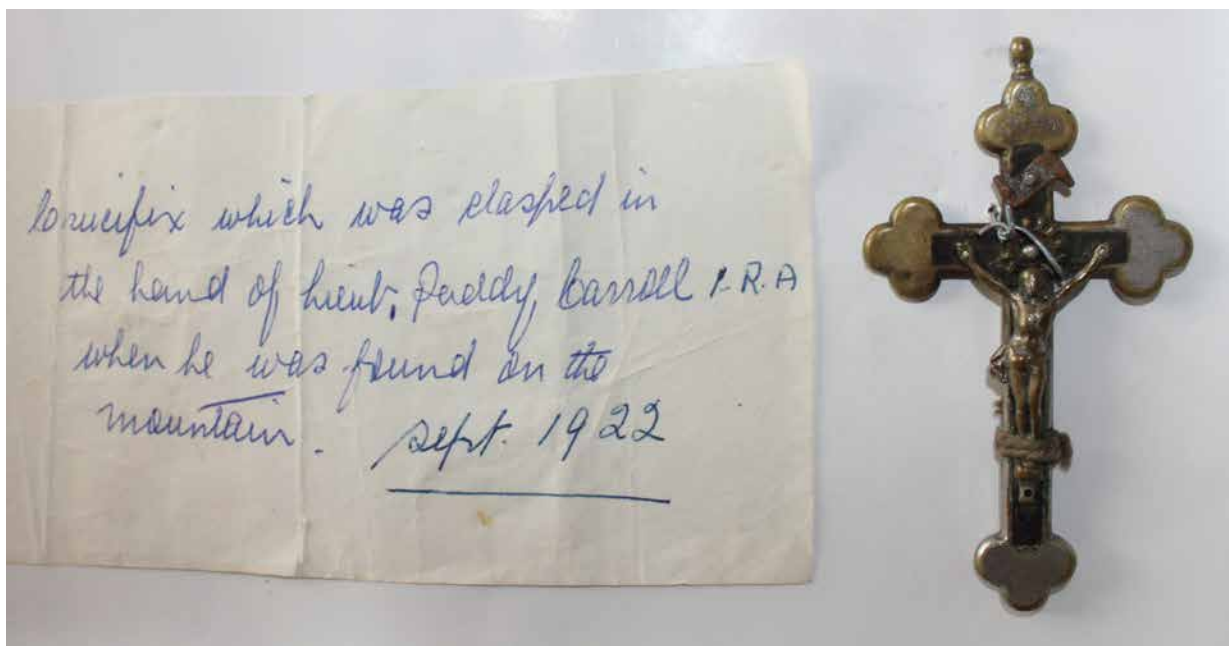 Crucifix which was clasped in
the hand of Lieut. Paddy Carroll I.R.A
when he was found on the
mountain. Sept. 1922